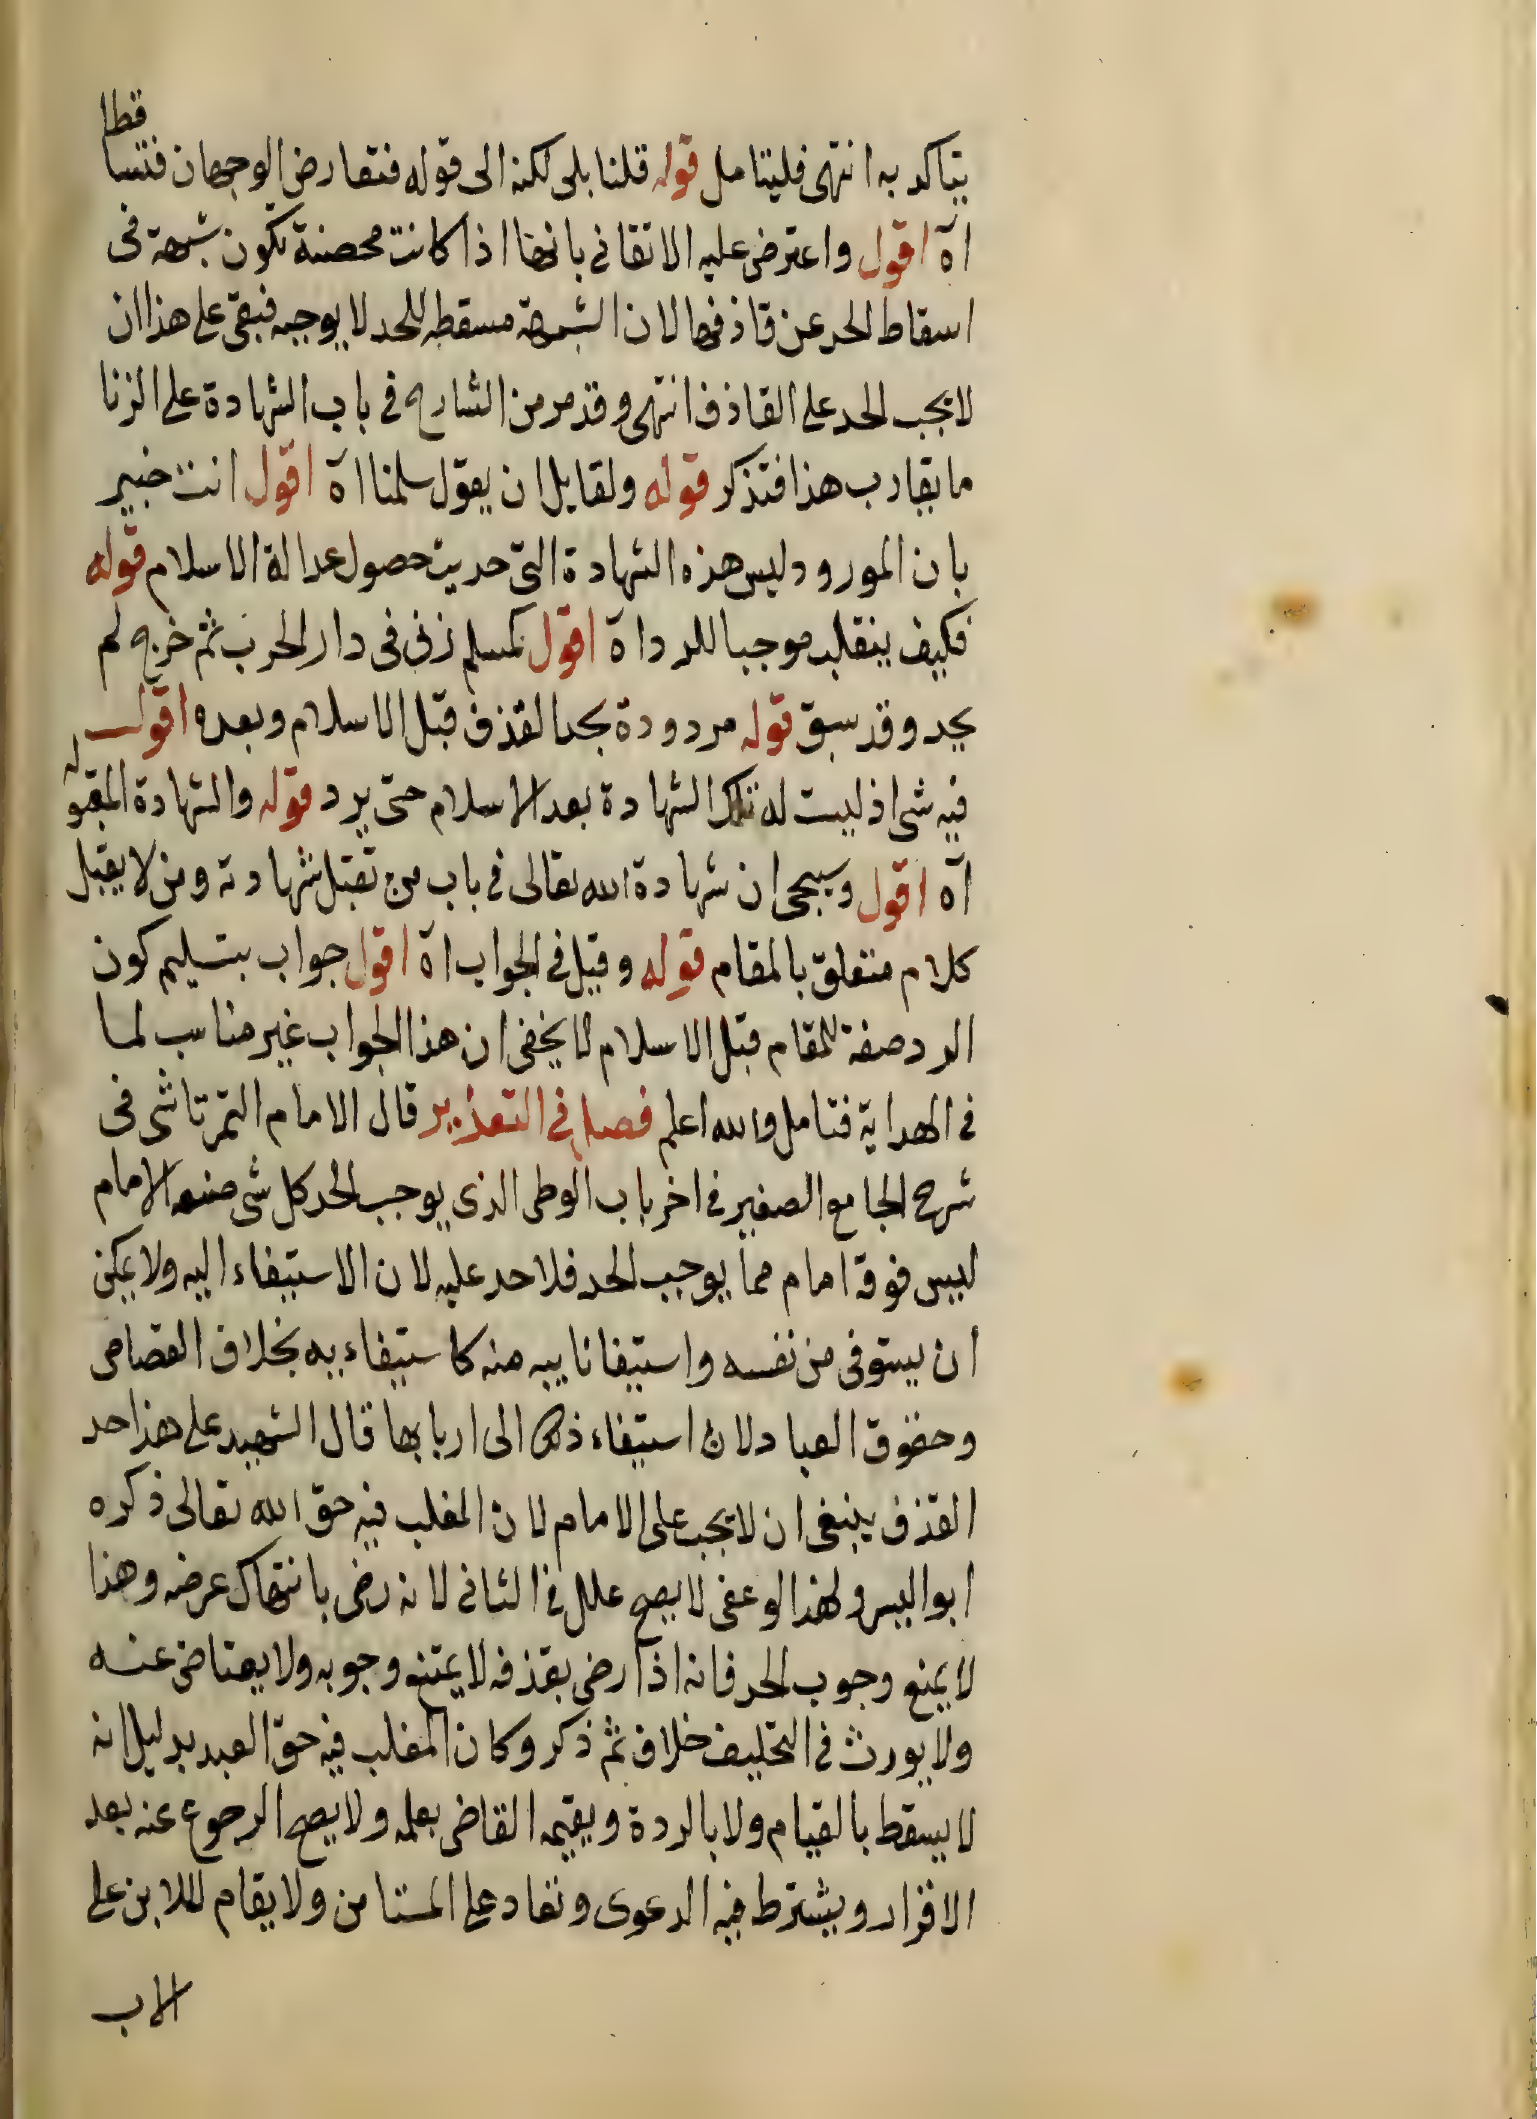 يتاكد به انتهى فليتامل قوله قلنا بلى لكنه الى قوله فتعارض الوجهان فتساقطا
اه اقول واعترض عليه الاتقانى بانها اذا كانت محصنة يكون شبهة فى
اسقاط الحد عن قاذفها لان الشبهة مسقطه للحد لا يوجبه فبقى على هذا ان
لا يجب الحد على القاذف انتهى وقد مر من الشارح فى باب الشهادة على الزنا
ما يقارب هذا فتذكر قوله ولقايل ان يقول سلمنا اه اقول انت خبير
بان المورود ليس هذه الشهادة التى حديث حصول عدالة الاسلام قوله
فكيف ينقلب موجبا للرد اه اقول كمسلم زنى فى دار الحرب ثم خرج لم
يحد وقد سبق قوله مردودة بحد القذف قبل الاسلام وبعده اقول
فيه شى اذ ليست له تلك الشهادة بعد الاسلام حتى يرد قوله والشهادة المقبوله
اه اقول وسيجى ان شهادة الله تعالى فى باب من تقبل شهادته ومن لا يقبل
كلام متعلق بالمقام قوله وقيل فى الجواب اه اقول جواب بتسليم كون
الرد صفة للمقام قبل الاسلام لا يخفى ان هذا الجواب غير مناسب لما
فى الهداية فتامل والله اعلم فصل فى التعذير قال الامام التمرتاشى فى
شرح الجامع الصغير فى اخر باب الوطى الذى يوجب الحد كل شى صنعه الامام
ليس فوقه امام مما يوجب الحد فلا حد عليه لان الاستيفاء اليه ولا يمكن
ان يستوفى من نفسه واستيفا نايبه منه كاستيفاء يه بخلاف القصاص
وحقوق العباد لان استيفاء ذلك الى اربابها قال الشهيد على هذا حد
القذف ينبغى ان لا يجب على الامام لان المغلب فيه حق الله تعالى ذكره
ابو اليسر ولهذا لو عفى لا يصح علل فى الثانى لانه رضى بانتهاك عرضه وهذا
لا يمنع وجوب الحد فانه اذا رضى بقذفه لا يمتنع وجوبه ولا يعتاض عنه
ولا يورث فى التحليف خلاف ثم ذكر وكان المغلب فيه حق العبد بدليل انه
لا يسقط بالقيام ولا بالردة ويقيمه القاضى بعلمه ولا يصح الرجوع عنه بعد
الاقرار ويشترط فيه الدعوى ونفاد على المستامن ولا يقام للابن على
الاب